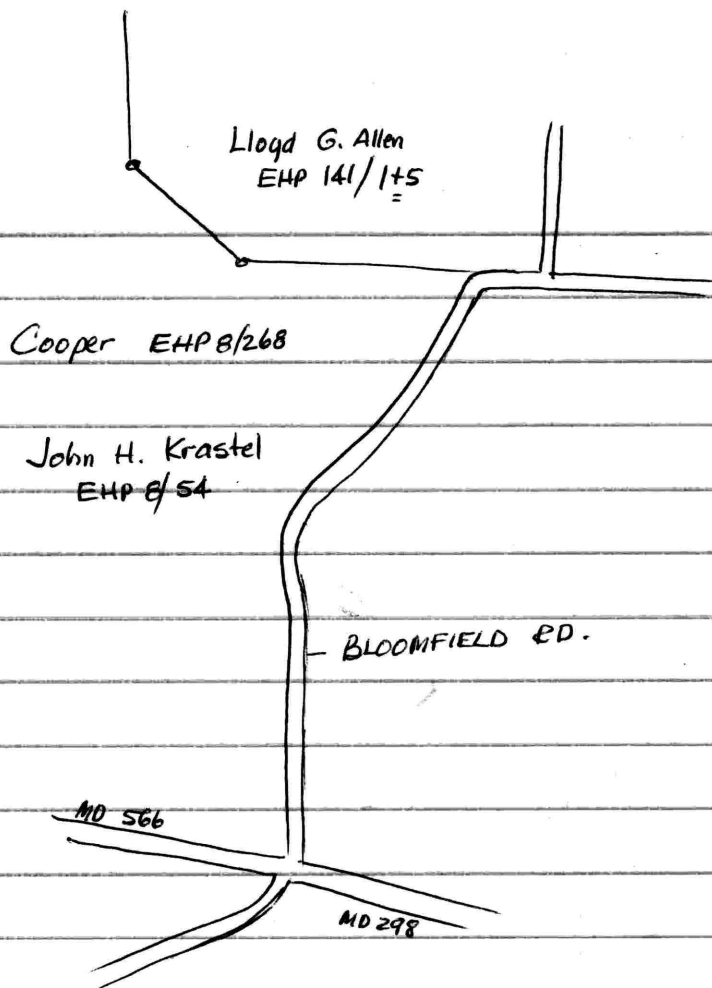 Lloyd G. Allen
EHP 141/1+5
Cooper EHP 8/268
John H. Krastel
EHP 8/54
BLOOMFIELD RD.
MD 566
MD 298